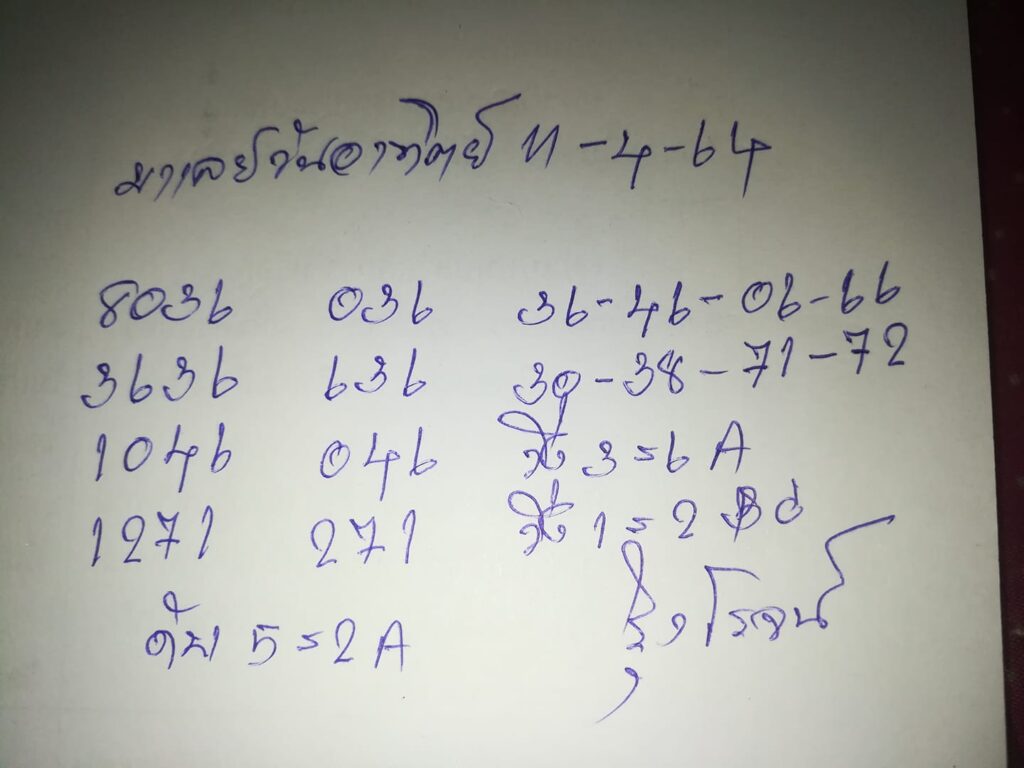 มาเลย์วันอาทิตย์ 11-4-64
8036 036 36-46-06-66
3636 636 39-38-71-72
1046 046 วิ่ง 3=6 A
1271 271 วิ่ง 1=2 B
5=2 A รุ่งโรจน์